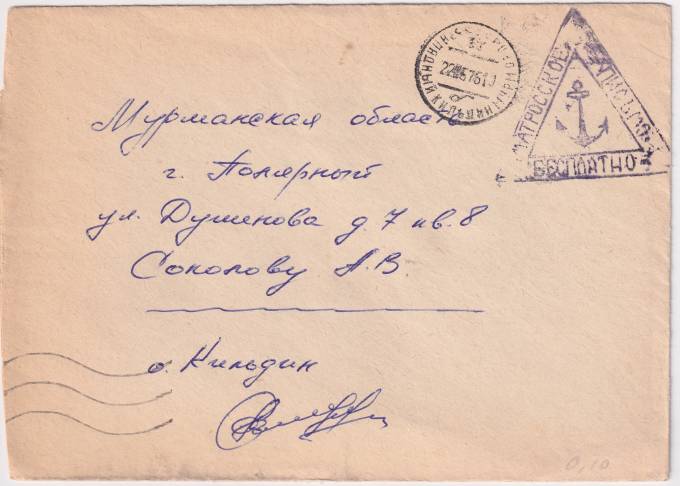 МАТРОССКОЕ ПИСЬМО
БЕСПЛАТНО
Мурманская область
г. Полярный
ул. Душенова д. 7 кв. 8
Соколову А.В.
о. Кильдин
0,10